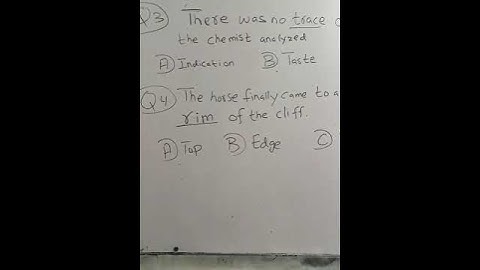 Q3 There was no trace
the chemist analyzed
A Indication B Taste
Q4 The horse finally came to a
rim of the cliff.
A Top B Edge C